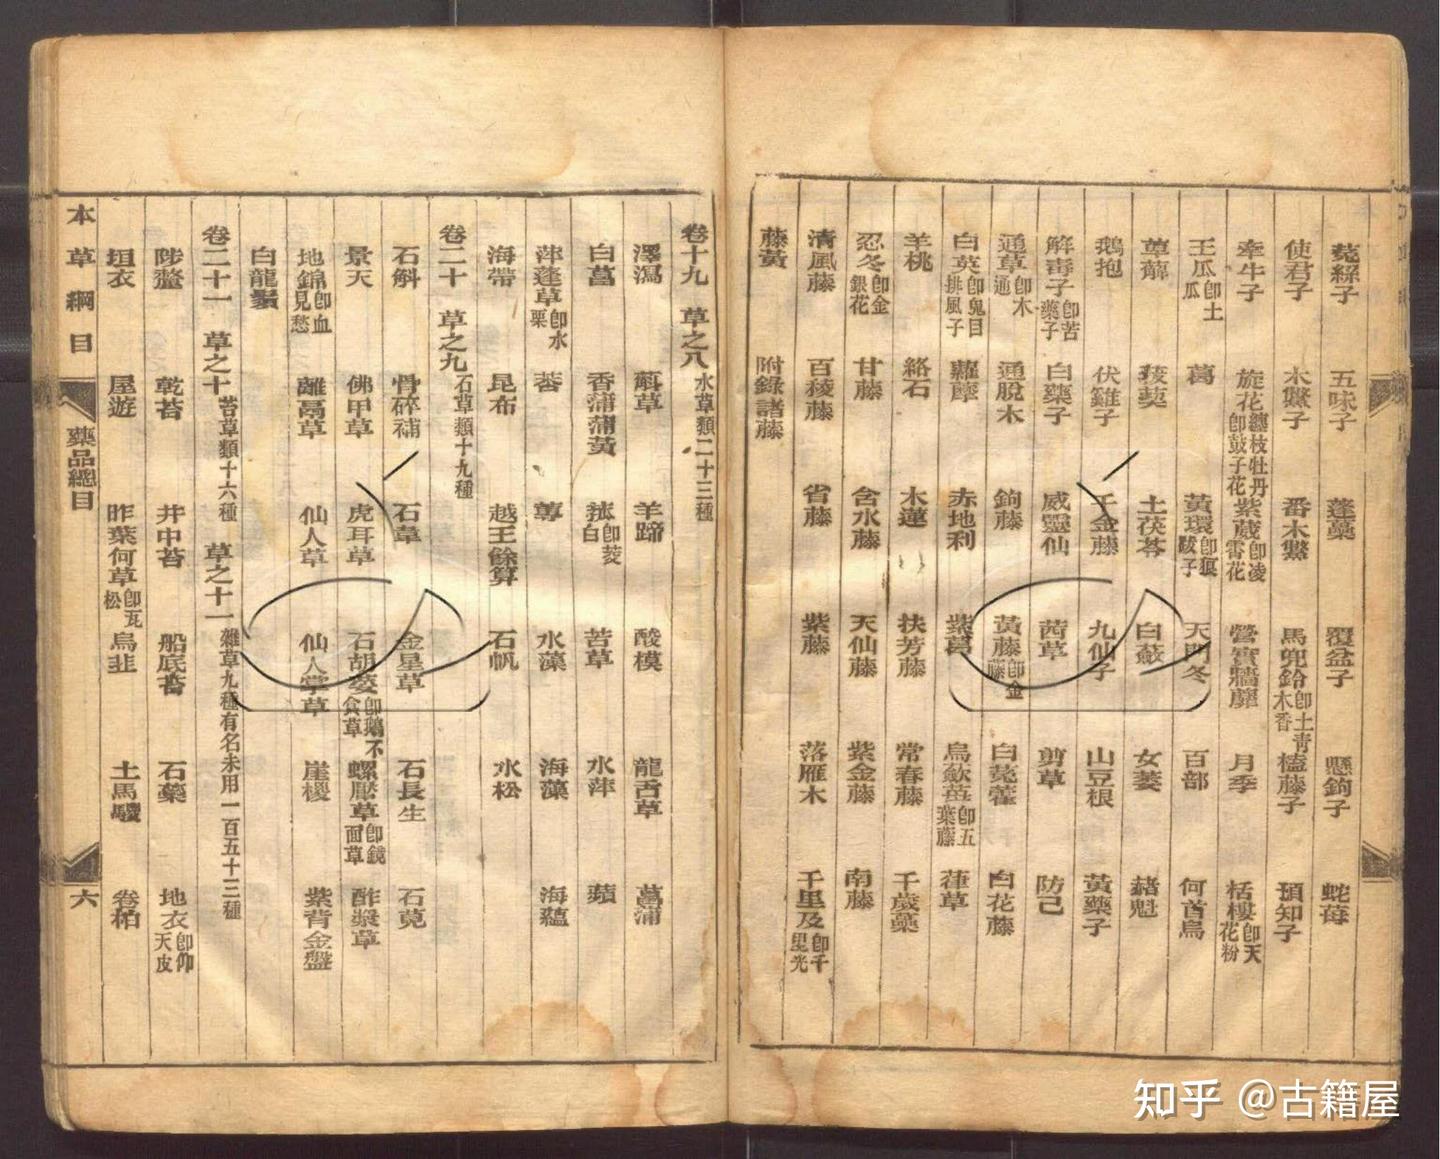 菟絲子 五味子 蓬藥 覆盆子 懸鉤子 蛇莓
使君子 木鱉子 番木鱉 馬兜鈴即土青木香 榼藤子 預知子
牽牛子 旋花即鼓子花纏枝牡丹 紫葳即凌霄花 營實牆蘼 月季 栝樓即天花粉
王瓜即土瓜 葛 黃環即狼跋子 天門冬 百部 何首烏
萆薢 菝葜 土茯苓 白蘞 女萎 赭魁
鵝抱 伏雞子 千金藤 九仙子 山豆根 黃藥子
解毒子即苦藥子 白藥子 威靈仙 茜草 剪草 防己
通草即木通 通脫木 鉤藤 黃藤即金藤 白菟藿 白花藤
白英即鬼目排風子 蘿藦 赤地利 紫葛 烏蘞莓即五葉藤 葎草
羊桃 絡石 木蓮 扶芳藤 常春藤 千歲藥
忍冬即金銀花 甘藤 含水藤 天仙藤 紫金藤 南藤
清風藤 百稜藤 省藤 紫藤 落雁木 千里及即千里光
藤黃 附錄諸藤
卷十九 草之八水草類二十三種
澤瀉 蔛草 羊蹄 酸模 龍舌草 菖蒲
白菖 香蒲蒲黃 菰即茭白 苦草 水萍 蘋
萍蓬草即水栗 莕 蓴 水藻 海藻 海蘊
海帶 昆布 越王餘算 石帆 水松
卷二十 草之九石草類十九種
石斛 骨碎補 石韋 金星草 石長生 石莧
景天 佛甲草 虎耳草 石胡荽即鵝不食草 螺厴草即鏡面草 酢漿草
地錦即血見愁 離鬲草 仙人草 仙人掌草 崖椶 紫背金盤
白龍鬚
卷二十一 草之十苔草類十六種 草之十一雜草九種有名未用一百五十三種
陟釐 乾苔 井中苔 船底苔 石蘂 地衣即仰天皮
垣衣 屋遊 昨葉何草即瓦松 烏韭 土馬騣 卷柏
本草綱目 藥品總目 六
知乎 @古籍屋